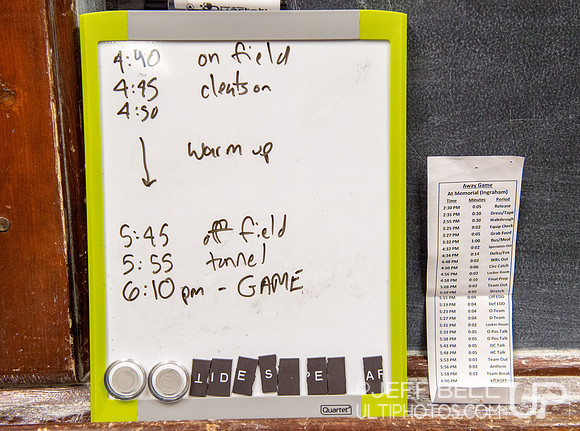 4:40 on field
4:45 cleats on
4:50
warm up
5:45 off field
5:55 tunnel
6:10 pm - GAME
TIDES PE AF
Quartet
Away Game
At Memorial (Ingraham)
Time Minutes Period
2:30 PM 0:05 Release
2:35 PM 0:20 Dress/Tape
2:55 PM 0:30 Walkthrough
3:25 PM 0:02 Equip Check
3:27 PM 0:05 Grab Food
3:32 PM 1:00 Bus/Meal
4:32 PM 0:02 Specialists Out
4:34 PM 0:14 Delts/Fox
4:48 PM 0:02 WRs Out
4:50 PM 0:06 Circ Catch
4:56 PM 0:02 Locker Room
4:58 PM 0:10 Final Prep
5:08 PM 0:02 Team Out
5:10 PM 0:05 Stretch
5:15 PM 0:04 Off EDD
5:19 PM 0:04 Def EDD
5:23 PM 0:04 O Team
5:27 PM 0:04 D Team
5:31 PM 0:02 Locker Room
5:33 PM 0:05 O Pos Talk
5:38 PM 0:05 D Pos Talk
5:43 PM 0:05 DC Talk
5:48 PM 0:05 HC Talk
5:53 PM 0:03 Team Out
5:56 PM 0:02 Anthem
5:58 PM 0:02 Team Break
KICKOFF
© JEFF BELL
ULTIPHOTOS.COM
UP